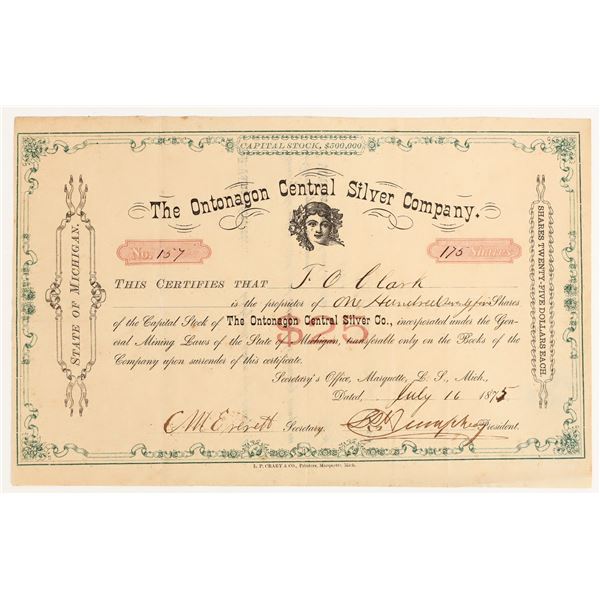 CAPITAL STOCK, $500,000.
The Ontonagon Central Silver Company.
STATE OF MICHIGAN.
SHARES TWENTY-FIVE DOLLARS EACH.
No. 157
175 Shares
THIS CERTIFIES THAT
is the proprietor of One Hundred Shares
$25
of the Capital Stock of The Ontonagon Central Silver Co., incorporated under the Gen-
eral Mining Laws of the State of Michigan, transferable only on the Books of the
Company upon surrender of this certificate.
Secretary's Office, Marquette, L. S., Mich.,
Dated, July 16 1875
C M Everett Secretary. President.
L. P. CRARY & CO., Printers, Marquette, Mich.